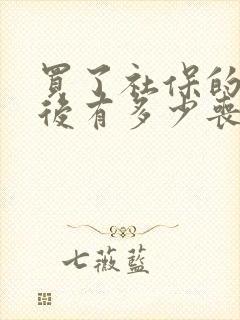 買了社保的
後有多少喪
七薇藍